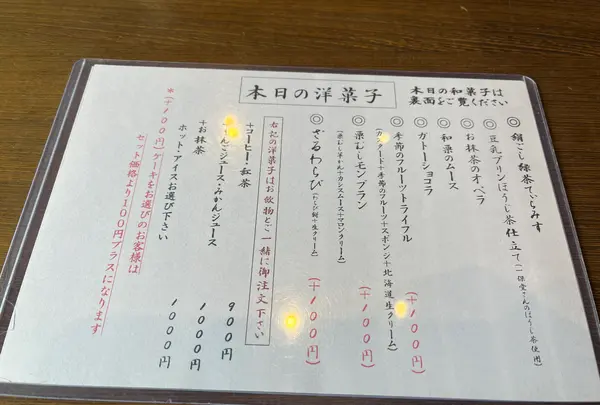 本日の洋菓子
本日の和菓子は
裏面をご覧ください
◎ 絹ごし緑茶てぃらみす
◎ 豆乳プリンほうじ茶仕立て(一保堂さんのほうじ茶使用)
◎ お抹茶のオペラ
◎ 和栗のムース
◎ ガトーショコラ
◎ 季節のフルーツトライフル (+100円)
(カスタード+季節のフルーツ+スポンジ+北海道生クリーム)
◎ 栗むしモンブラン (+100円)
(栗むし羊かん+カシスムース+マロンクリーム)
◎ ざるわらび (わらび餅+生クリーム) (+100円)
右記の洋菓子はお飲物とご一緒に御注文下さい
+コーヒー・紅茶 900円
りんごジュース・みかんジュース 1000円
+お抹茶 1000円
ホット・アイスお選び下さい
*(+100円)ケーキをお選びのお客様は
セット価格より100円プラスになります